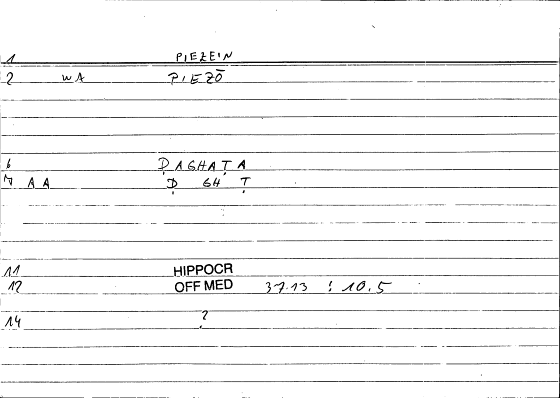 1 PIEZEIN
2 WA PIEZŌ
6 ḌAGHAṬA
7 AA Ḍ GH Ṭ
11 HIPPOCR
12 OFF MED 37.13 : 10.5
14 ?